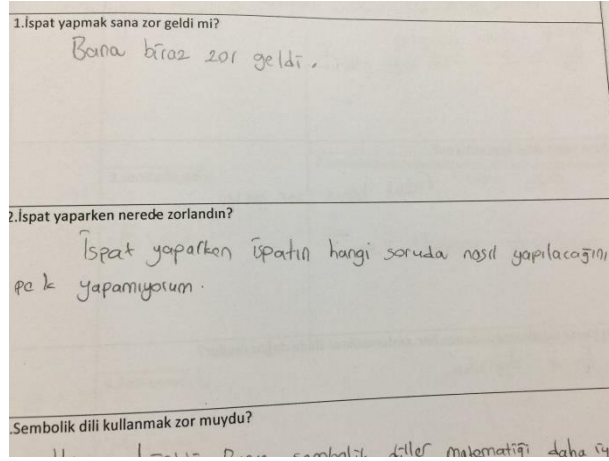 1.İspat yapmak sana zor geldi mi?
Bana biraz zor geldi.
2.İspat yaparken nerede zorlandın?
İspat yaparken ispatın hangi soruda nasıl yapılacağını
pek yapamıyorum.
.Sembolik dili kullanmak zor muydu?
sembolik diller matematiği daha iy